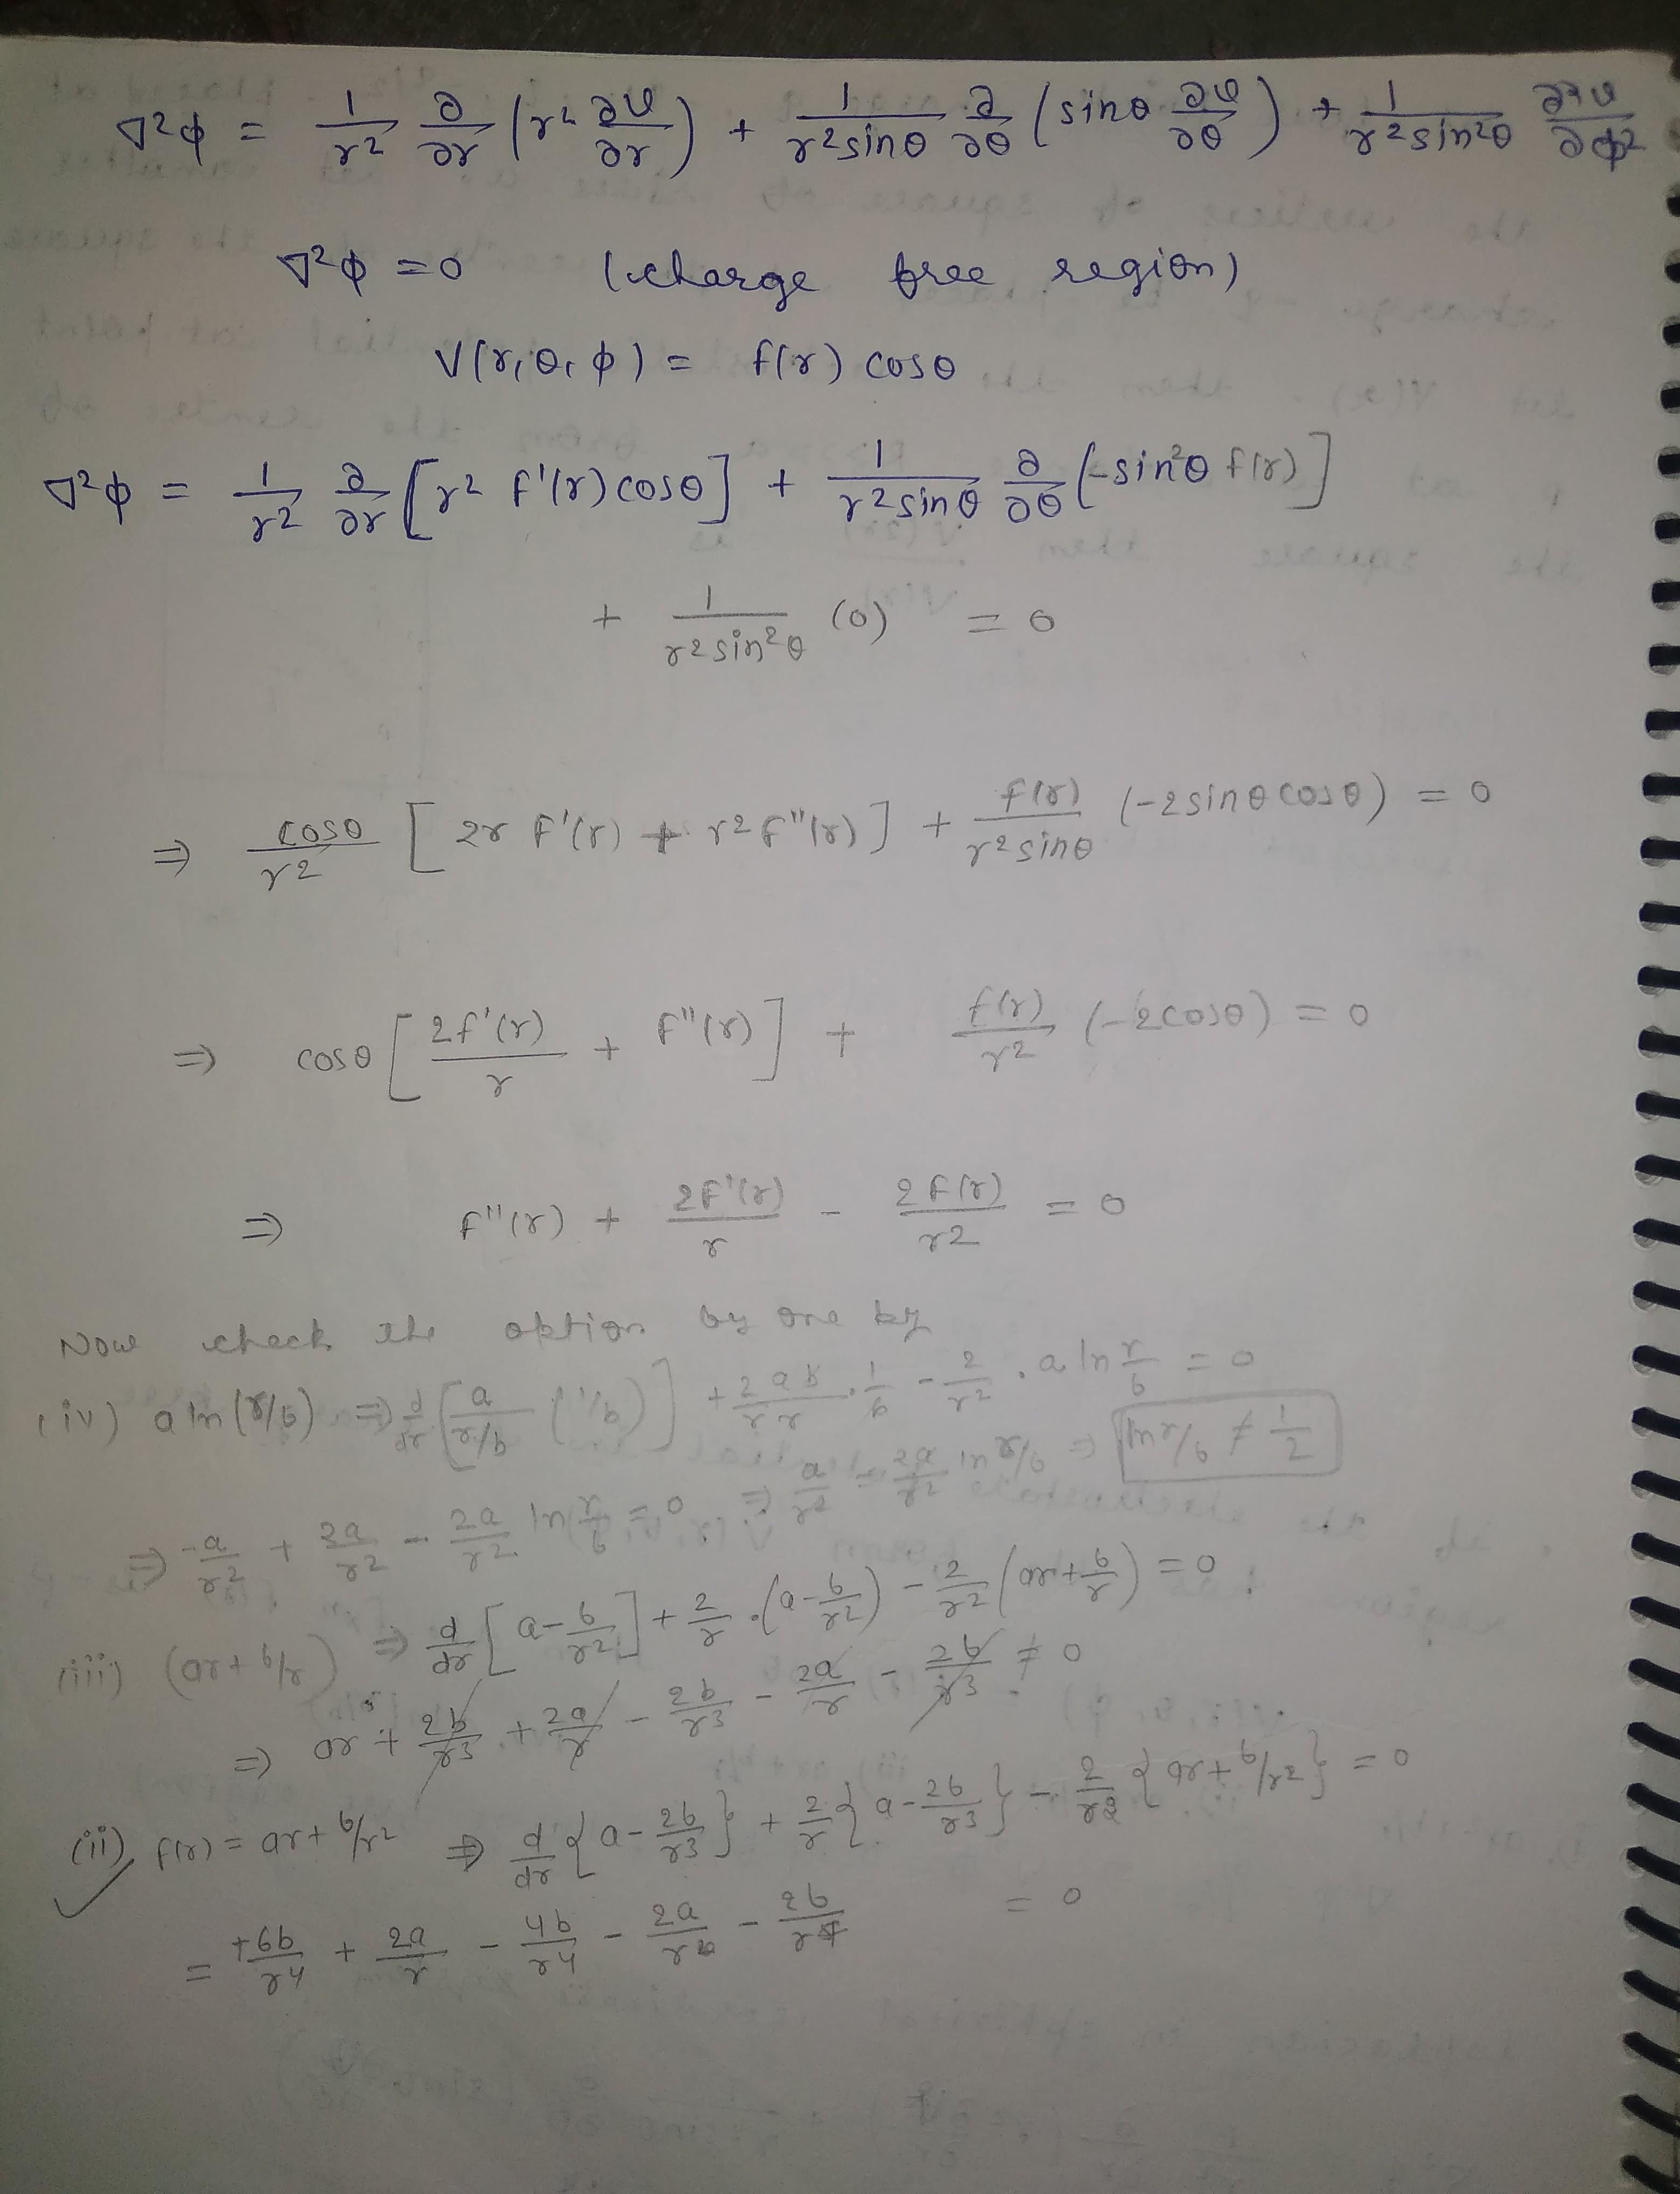 ∇²φ = 1/r² ∂/∂r (r² ∂V/∂r) + 1/(r² sinθ) ∂/∂θ (sinθ ∂V/∂θ) + 1/(r² sin²θ) ∂²V/∂φ²
∇²φ = 0 (charge free region)
V(r, θ, φ) = f(r) cosθ
∇²φ = 1/r² ∂/∂r [r² f'(r) cosθ] + 1/(r² sinθ) ∂/∂θ (-sin²θ f(r)]
+ 1/(r² sin²θ) (0) = 0
⇒ cosθ/r² [2r f'(r) + r² f''(r)] + f(r)/(r² sinθ) (-2 sinθ cosθ) = 0
⇒ cosθ [2f'(r)/r + f''(r)] + f(r)/r² (-2cosθ) = 0
⇒ f''(r) + 2f'(r)/r - 2f(r)/r² = 0
Now check the option by one by
(iv) a ln(r/b) ⇒ d/dr [a/(r/b) (1/b)] + 2/r ab/r · 1/b - 2/r² · a ln r/b = 0
⇒ -a/r² + 2a/r² - 2a/r² ln r/b = 0 ⇒ a/r² = 2a/r² ln r/b ⇒ ln r/b ≠ 1/2
(iii) (ar + b/r) ⇒ d/dr [a - b/r²] + 2/r · (a - b/r²) - 2/r² (ar + b/r) = 0
⇒ ar + 2b/r³ + 2a/r - 2b/r³ - 2a/r - 2b/r³ ≠ 0
(ii) f(r) = ar + b/r² ⇒ d/dr {a - 2b/r³} + 2/r {a - 2b/r³} - 2/r² {ar + b/r²} = 0
= +6b/r⁴ + 2a/r - 4b/r⁴ - 2a/r - 2b/r⁴ = 0